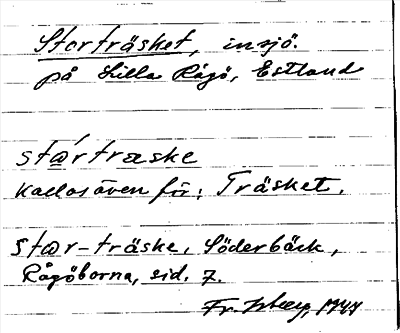 Storträsket, insjö.
på Lilla Rågö, Estland
stά̱rtræske
kallas även för: Träsket.
stα̱r-träske, Söderbäck,
Rågöborna, sid. 7.
Fr. 1944